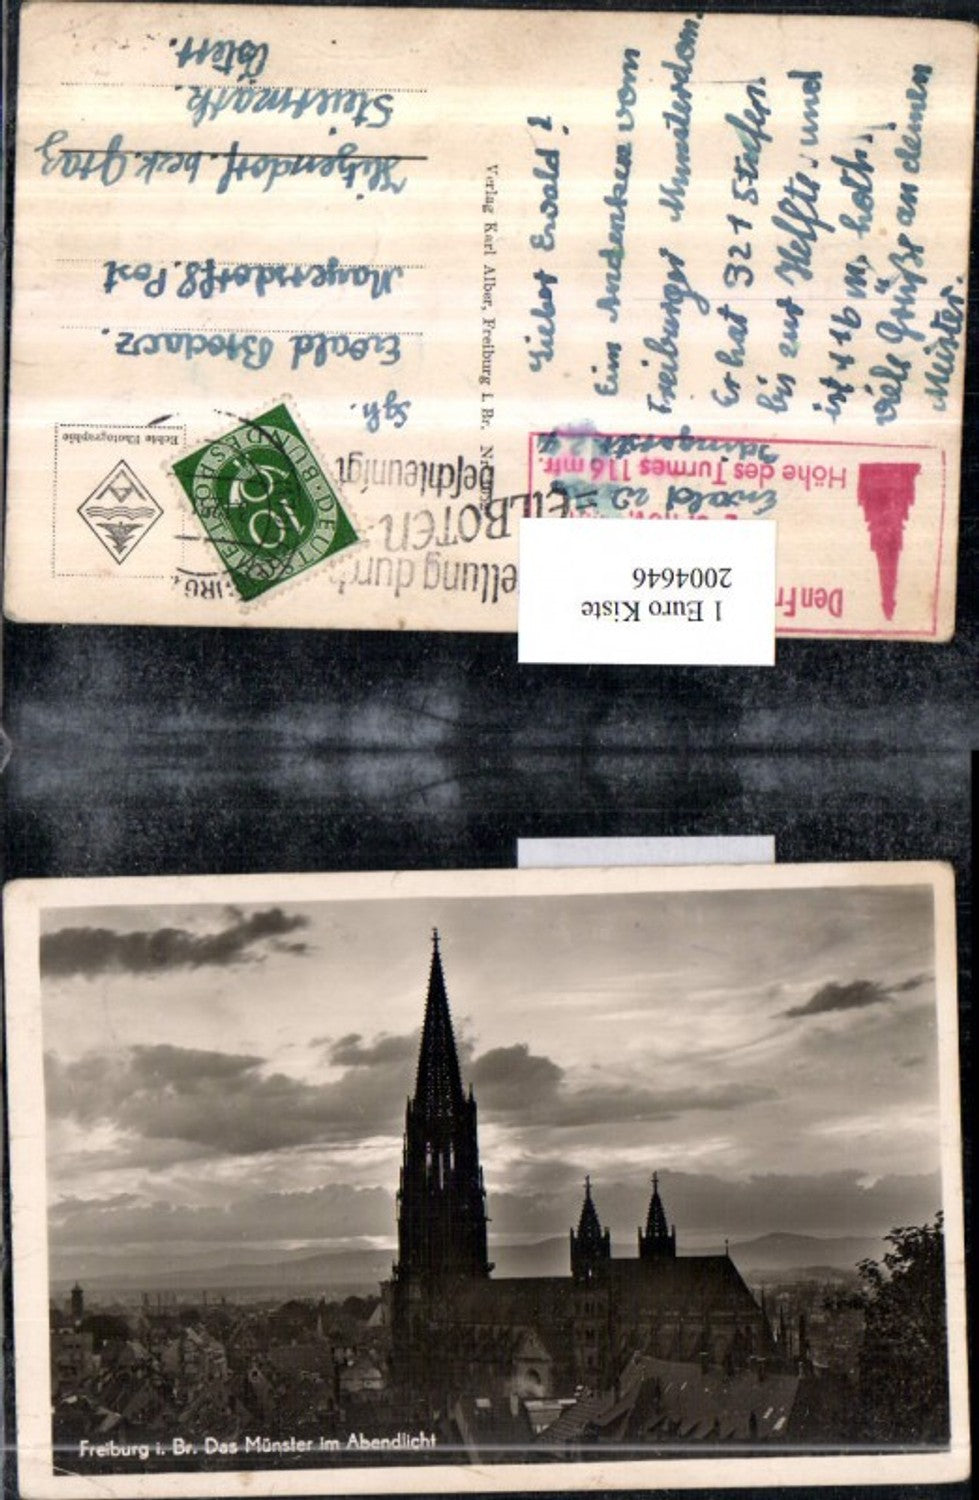 Lieber Ewald!
Ein Andenken vom
Freiburger Münsterdom.
Er hat 321 Stufen.
bis zur Helfte. und
ist 116 m. hoch.
viele Grüße an deinen
Meister.
Ewald
Verlag Karl Alber, Freiburg i. Br.
Höhe des Turmes 116 mtr.
Den
Echte Photographie
DEUTSCHE BUNDESPOST
10
ellung durch
EILBOTEN
beschleunigt
Ewald
Mayersdorf 8. Post
Hitzendorf. bezk. Graz
Steiermark.
Österr.
1 Euro Kiste
2004646
Freiburg i. Br. Das Münster im Abendlicht